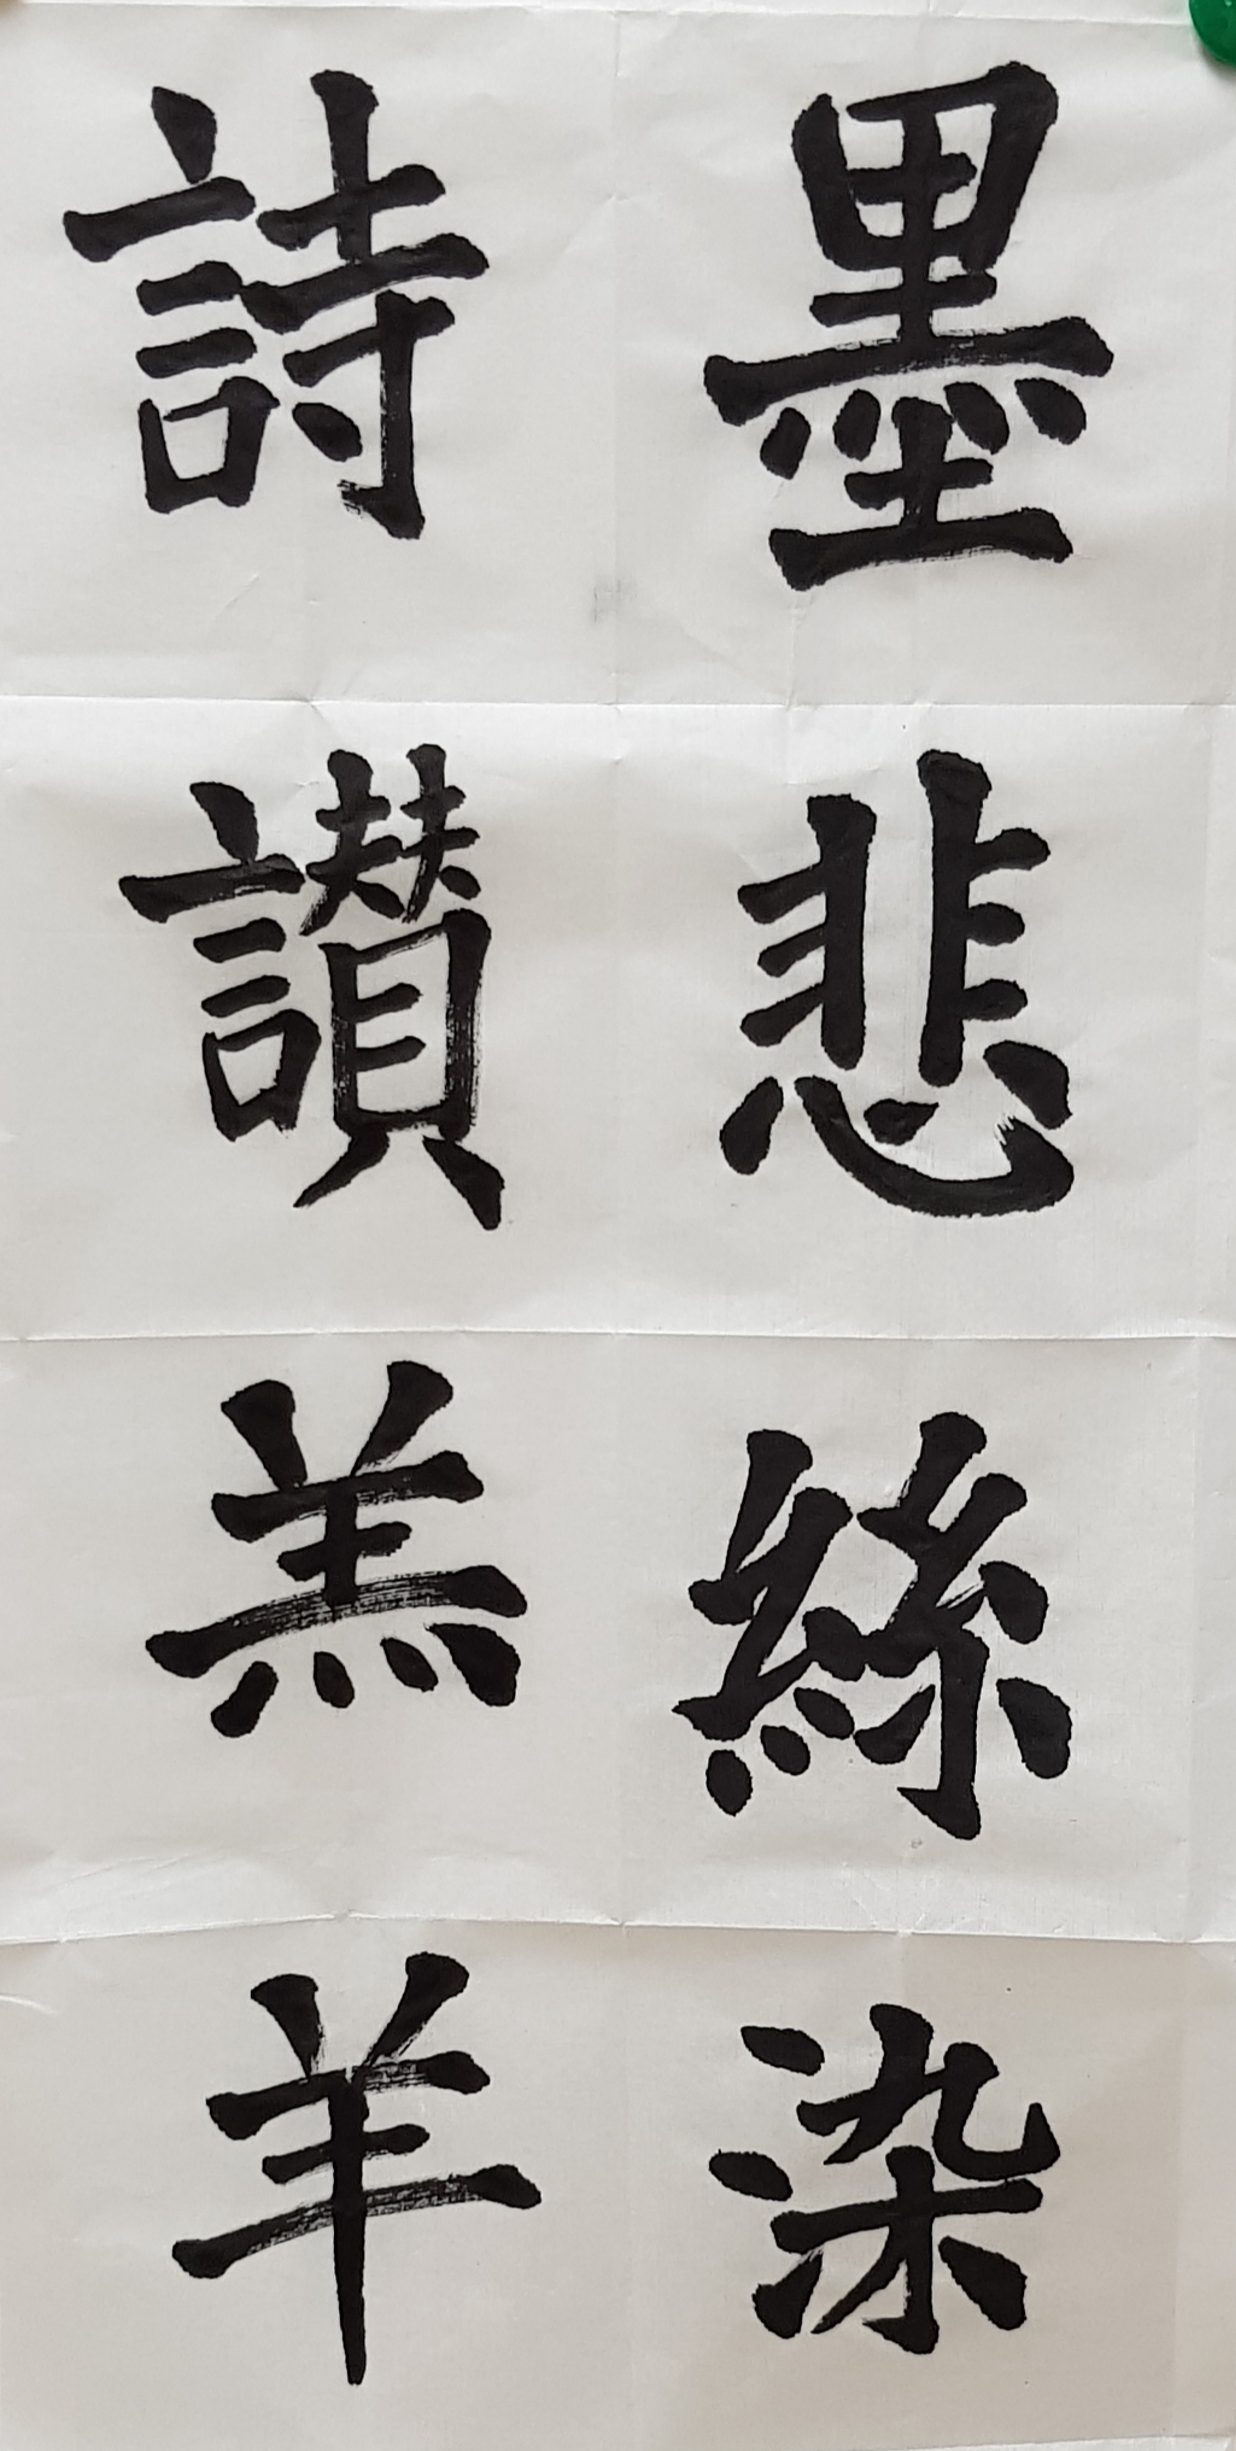 墨悲絲染
詩讚羔羊